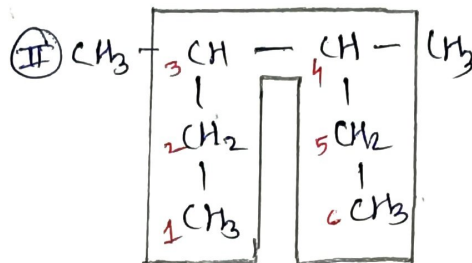 II CH3 - 3 CH - 4 CH - CH3
2 CH2 5 CH2
1 CH3 6 CH3